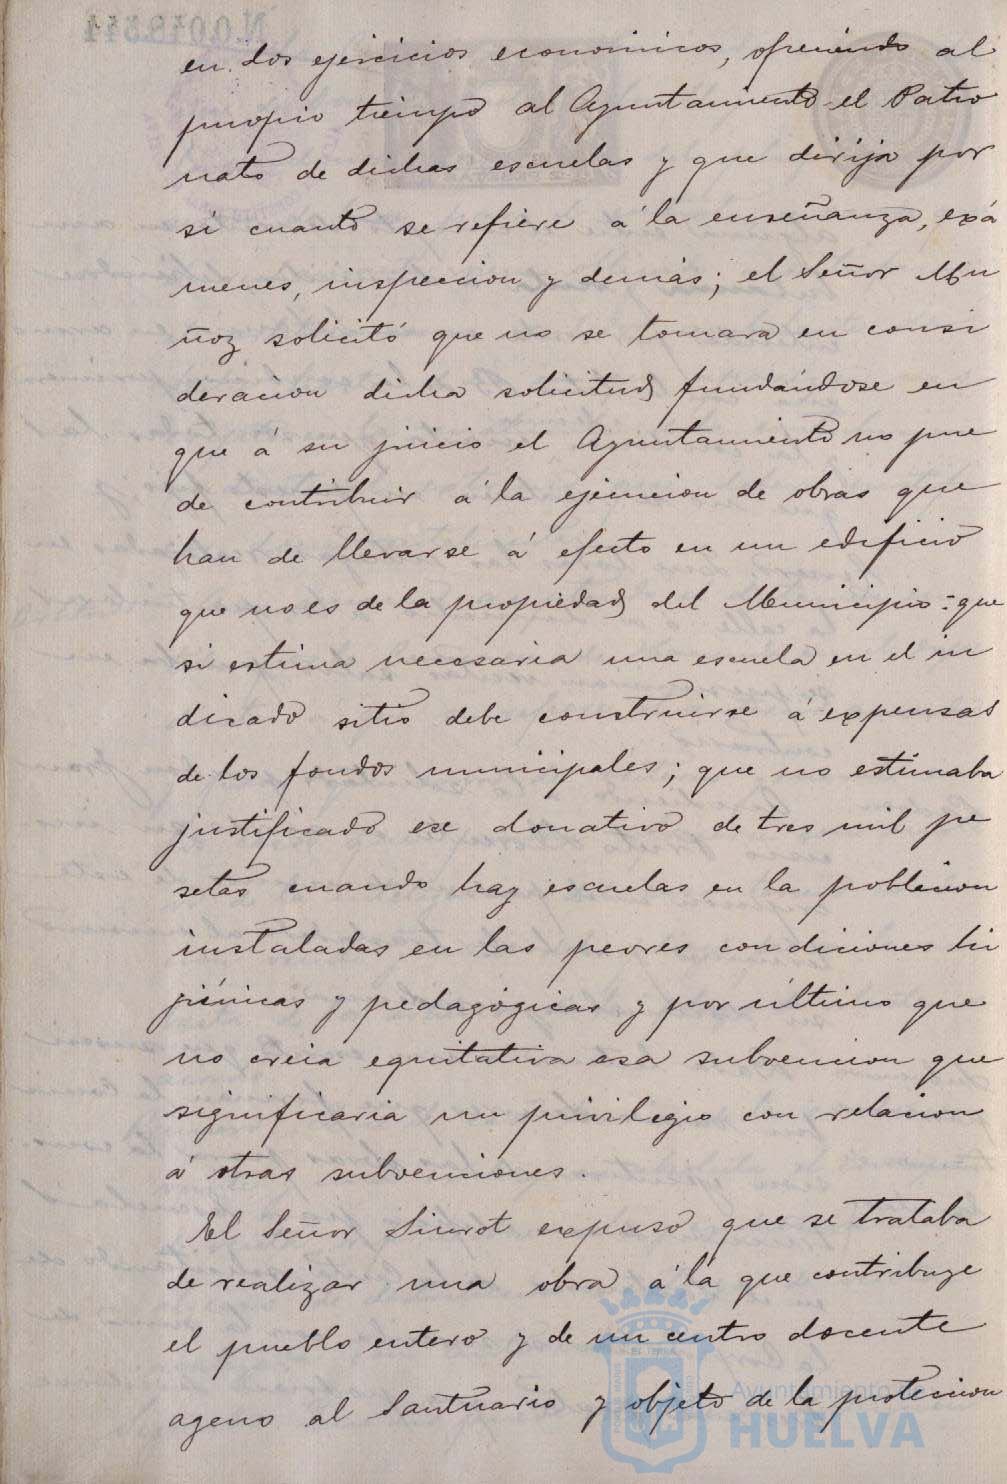 N.0.018.511
en dos ejercicios economicos, ofreciendo al
propio tiempo al Ayuntamiento el Patro
nato de dichas escuelas y que dirija por
sí cuanto se refiere á la enseñanza, exá
menes, inspeccion y demás; el Señor Mu
ñoz solicitó que no se tomara en consi
deracion dicha solicitud fundándose en
que á su juicio el Ayuntamiento no pue
de contribuir á la ejecucion de obras que
han de llevarse á efecto en un edificio
que no es de la propiedad del Municipio: que
si estima necesaria una escuela en el in
dicado sitio debe construirse á expensas
de los fondos municipales; que no estimaba
justificado ese donativo de tres mil pe
setas cuando hay escuelas en la poblacion
instaladas en las peores condiciones hi
jiénicas y pedagógicas y por último que
no creia equitativa esa subvencion que
significaria un privilegio con relacion
á otras subvenciones.
El Señor Siurot expuso que se trataba
de realizar una obra á la que contribuye
el pueblo entero y de un centro docente
ageno al Santuario y objeto de la proteccion
Ayuntamiento
HUELVA